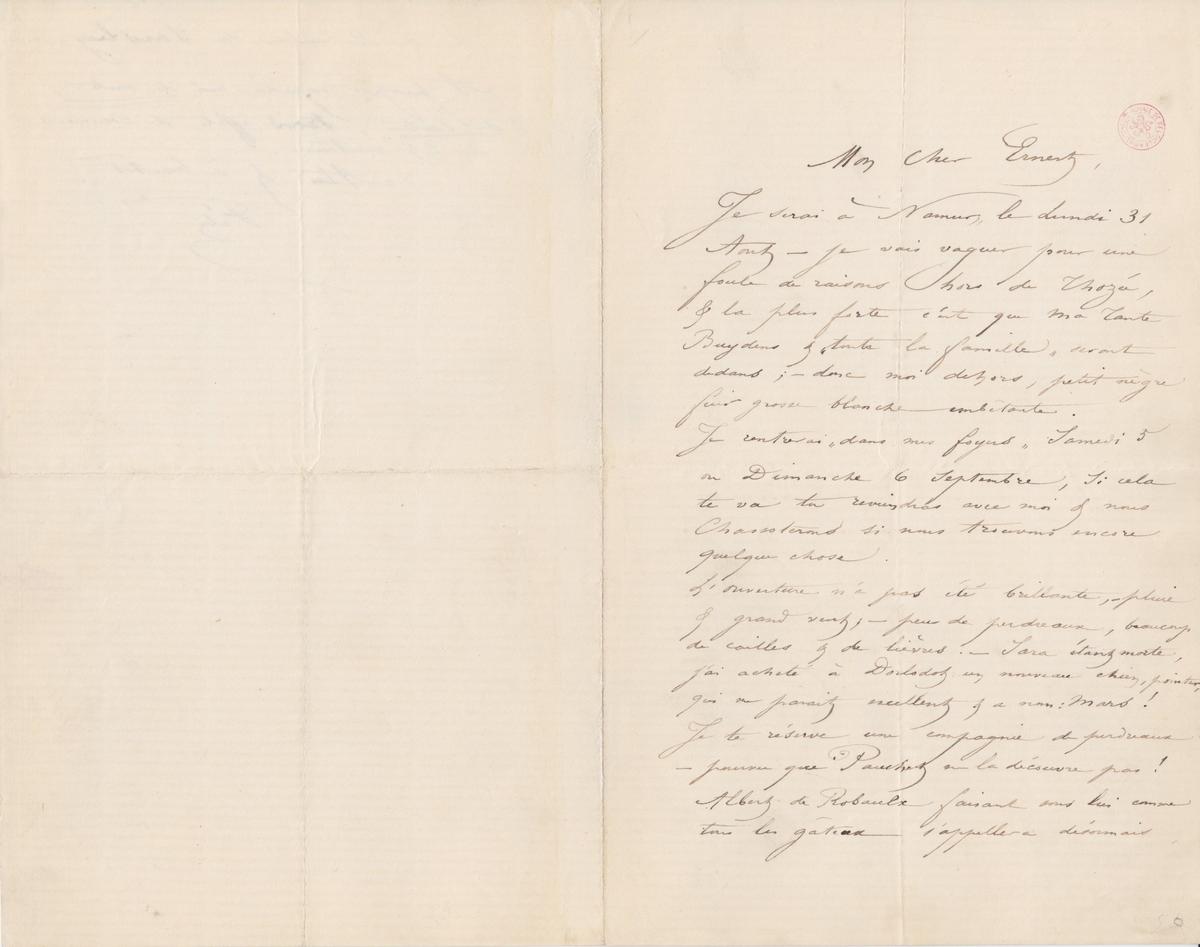 Mon Cher Ernest,
Je serai à Namur, le Lundi 31
Août – je vais vaguer pour une
foule de raisons hors de Thozée,
& la plus forte c'est que ma Tante
Buydens & „toute la famille„ seront
dedans ; – donc moi dehors, petit nègre
fuir grosse blanche embêtante.
Je rentrerai „dans mes foyers„ Samedi 5
ou Dimanche 6 Septembre, Si cela
te va tu reviendras avec moi & nous
Chasserons si nous trouvons encore
quelque chose.
L'ouverture n'a pas été brillante, – pluie
& grand vent ; – peu de perdreaux, beaucoup
de cailles & de lièvres. – Sara étant morte,
j'ai acheté à Dorlodot un nouveau chien, pointer,
qui me parait excellent & a nom: Mars !
Je te réserve une compagnie de perdreaux
– pourvu que Pauchet ne la découvre pas !
Albert de Robaulx faisant sous lui comme
tous les gâteux s'appellera désormais